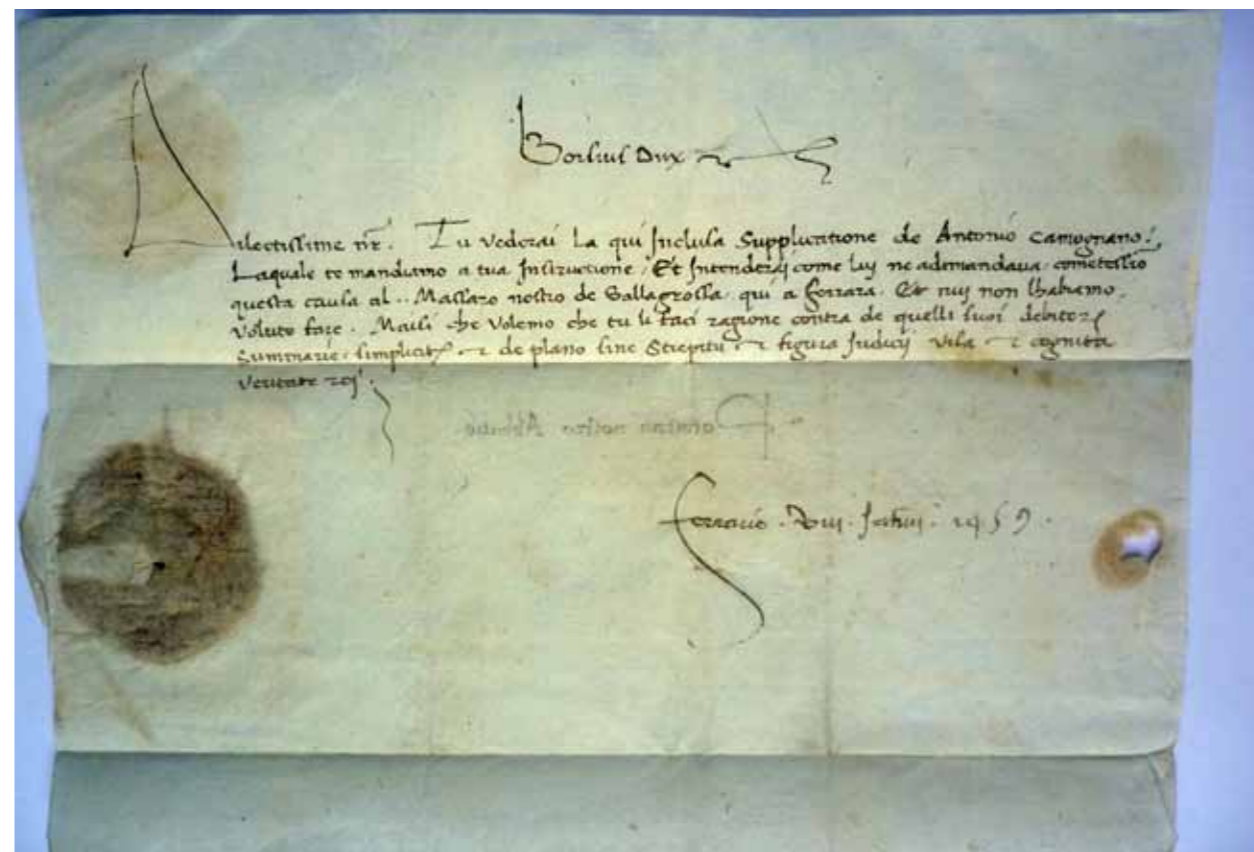 Borsius Dux &c
Dilectissime nr̃. Tu vederai la qui Inclusa Supplicatione de Antonio Camognano:
Laquale te mandiamo a tua Instructione, Et Intenderaj come luj ne ademandava cometessio
questa causa al .. Massaro nostro de Sallagrossa qui a Ferrara. Et nuj non lhabiamo
voluto fare. Maisi che volemo che tu li faci ragione contra de quelli suoi debitorȩ
Summarie, simplicitȩ & de plano sine Strepitu & figura Judicij visa & cognita
veritate rej.
nostro
Ferrarie . VIII . 1459 .